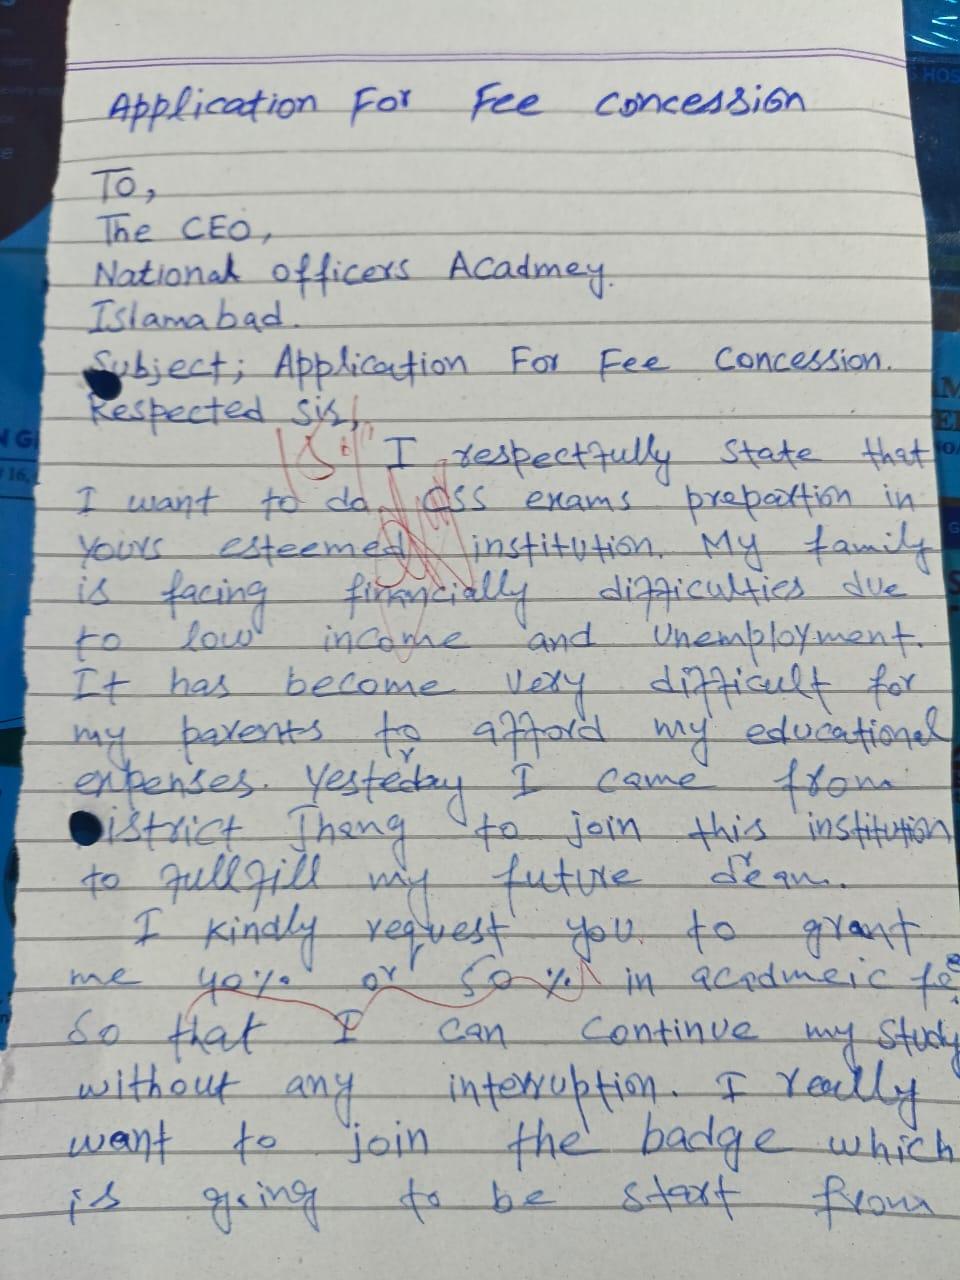 Application For Fee Concession
To,
The CEO,
National officers Acadmey.
Islamabad.
Subject; Application For Fee Concession.
Respected sir,
I respectfully state that
I want to do CSS exams prepartion in
yours esteemed institution. My family
is facing financially difficulties due
to low income and unemployment.
It has become very difficult for
my parents to afford my educational
expenses. Yesterday I came from
District Jhang to join this institution
to fullfill my future dream.
I kindly request you to grant
me 40% or 50% in acadmeic fee
So that I can continue my study
without any interruption. I really
want to join the badge which
is going to be start from